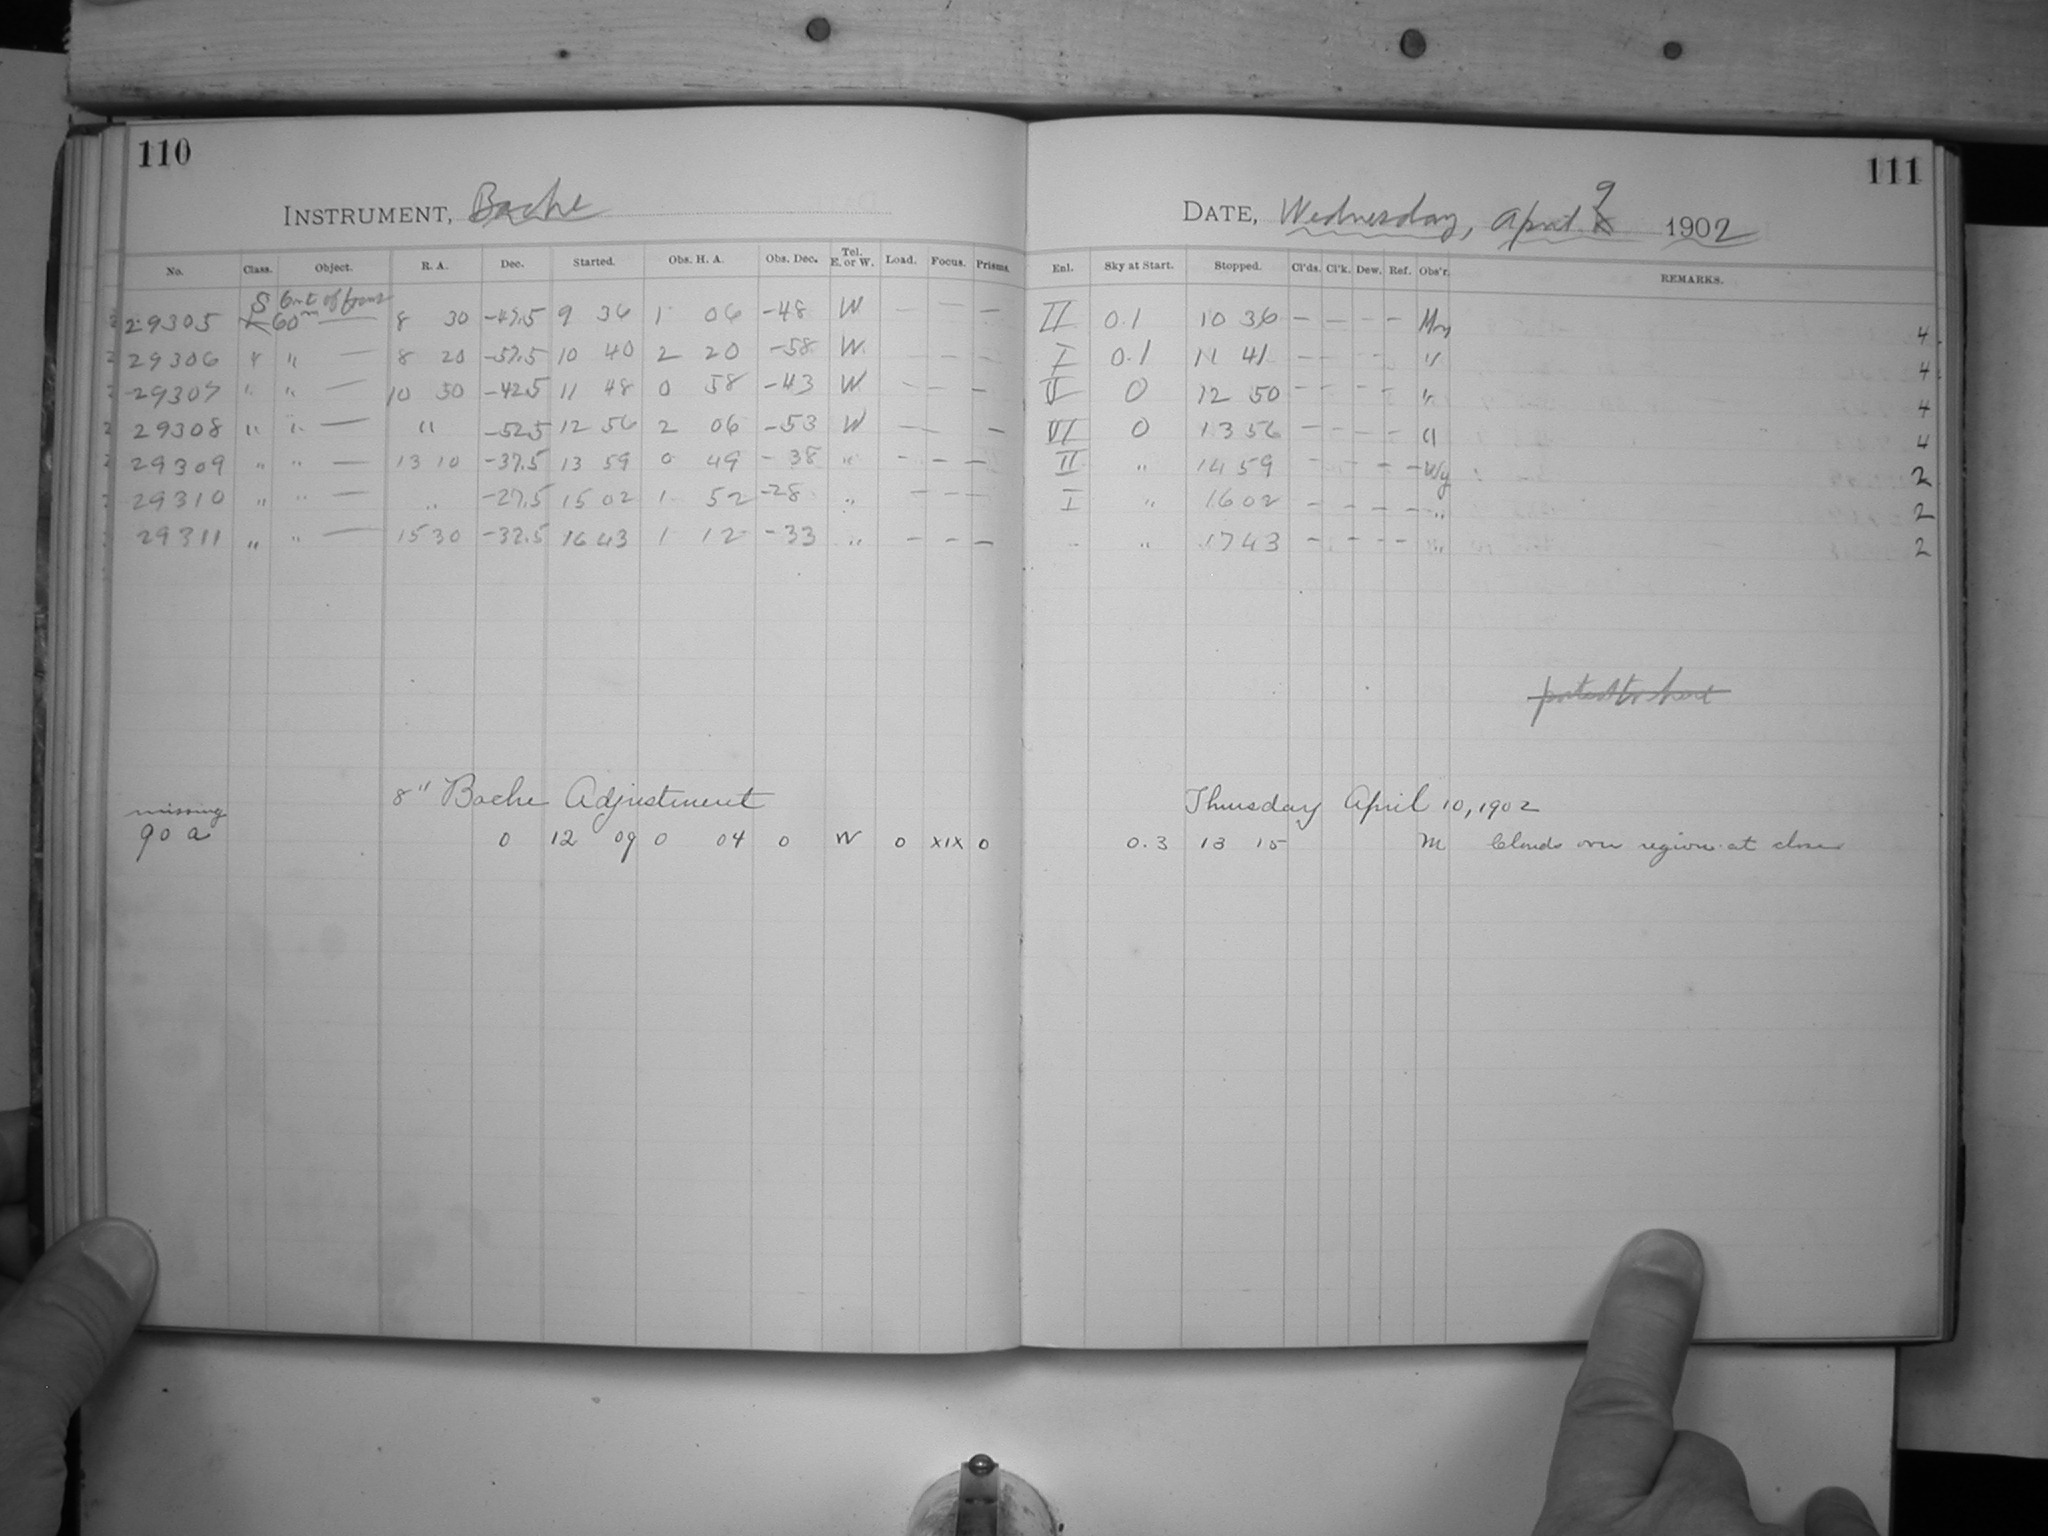 110
INSTRUMENT, Bache
No. Class. Object. R. A. Dec. Started. Obs. H. A. Obs. Dec. Tel. E. or W. Load. Focus. Prisms.
S Out of focus
29305 60m — 8 30 -47.5 9 36 1 06 -48 W — — —
29306 " " — 8 20 -57.5 10 40 2 20 -58 W — — —
29307 " " — 10 50 -42.5 11 48 0 58 -43 W — — —
29308 " " — " -52.5 12 56 2 06 -53 W — — —
29309 " " — 13 10 -37.5 13 59 0 49 -38 " — — —
29310 " " — " -27.5 15 02 1 52 -28 " — — —
29311 " " — 15 30 -32.5 16 43 1 12 -33 " — — —
8" Bache Adjustment
missing
90 a 0 12 09 0 04 0 W 0 XIX 0
111
DATE, Wednesday, April 9 1902
Enl. Sky at Start. Stopped. Cl'ds. Cl'k. Dew. Ref. Obs'r. REMARKS.
II 0.1 10 36 — — — 4
I 0.1 11 41 — — — " 4
V 0 12 50 — — — " 4
VI 0 13 56 — — — — 4
II " 14 59 — — — — Wy 2
I " 16 02 — — — — " 2
" " 17 43 — — — — " 2
Thursday April 10, 1902
0.3 13 15 M Clouds over region at close